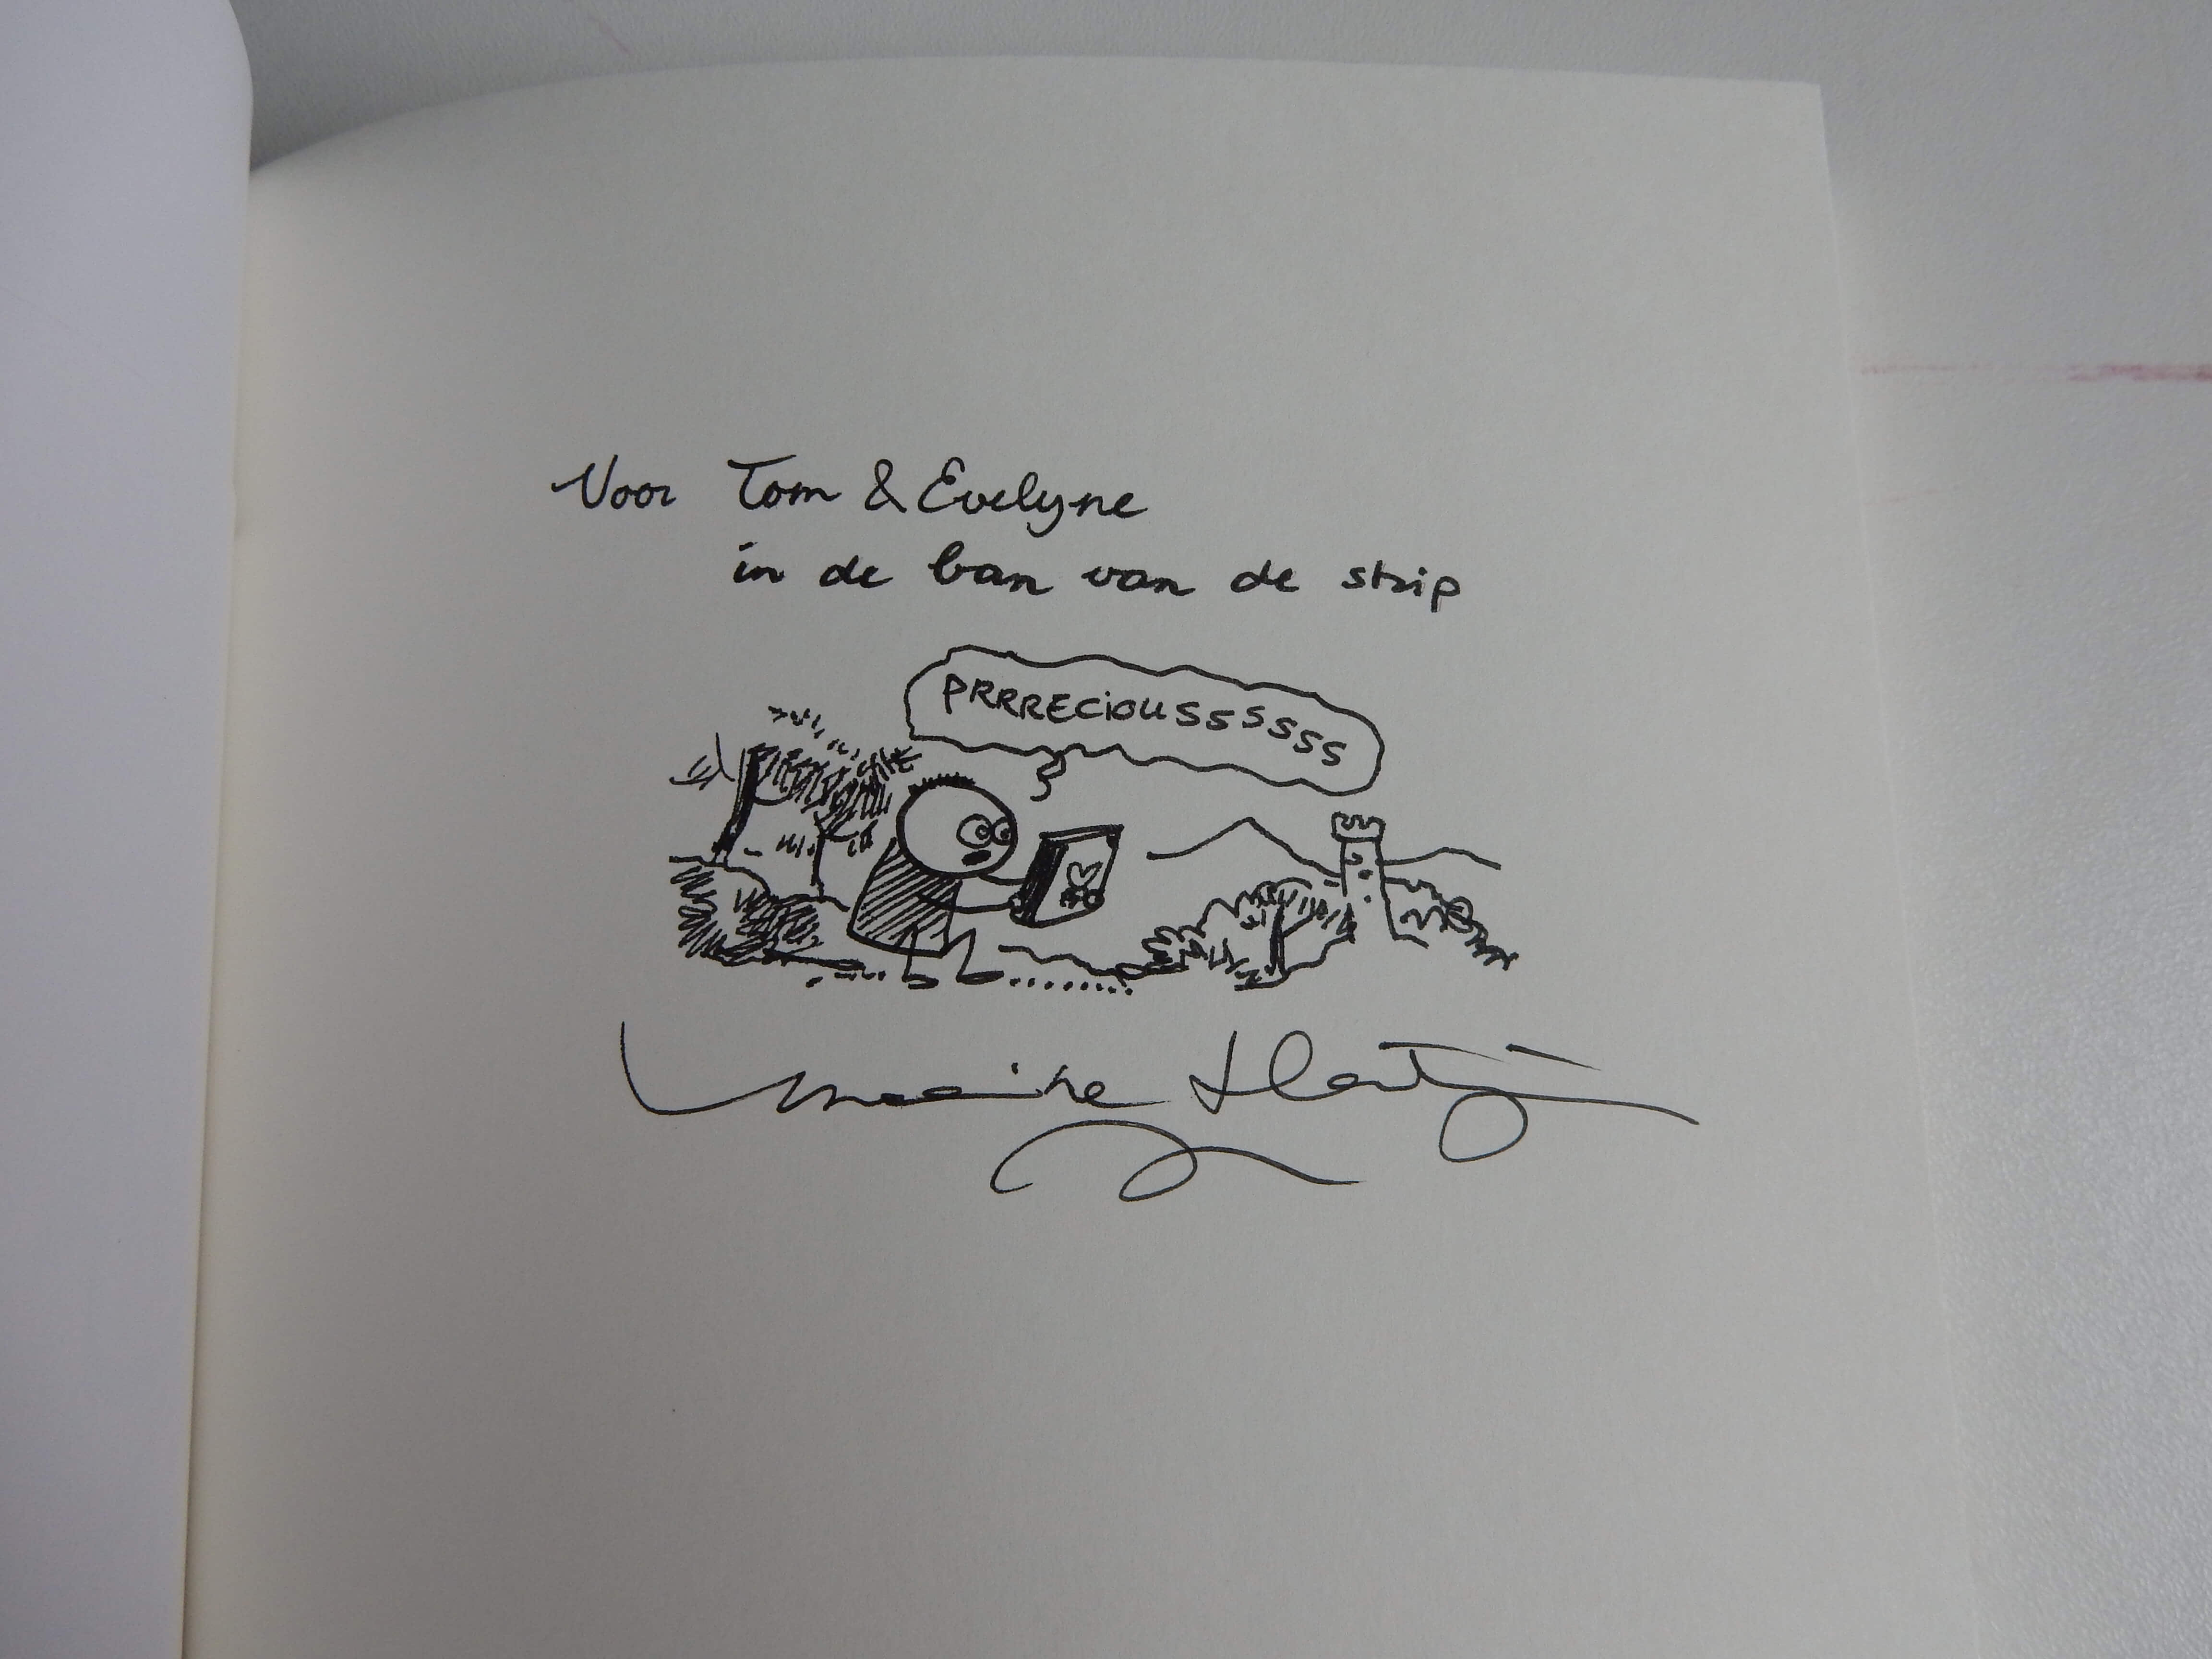 Voor Tom & Evelyne
in de ban van de strip
PRRRECIOUSSSSSS
Maaike Hartjes